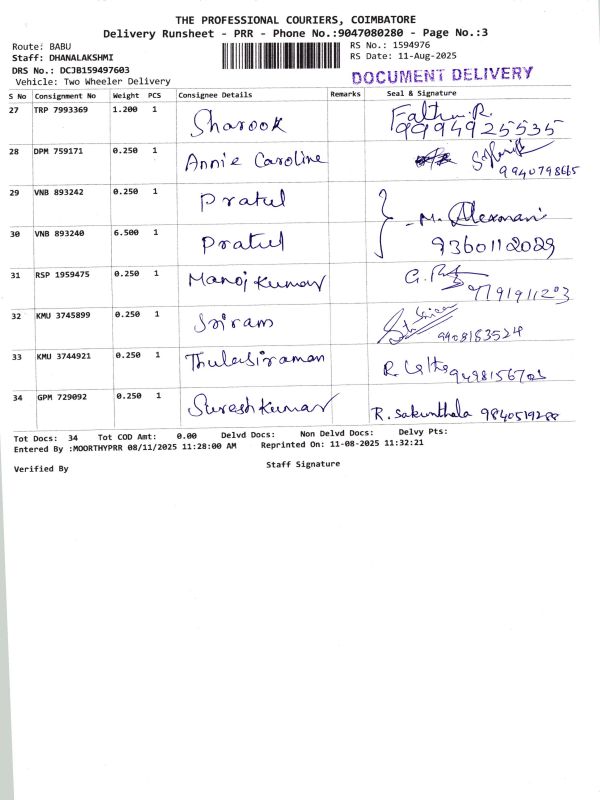 THE PROFESSIONAL COURIERS, COIMBATORE
Delivery Runsheet - PRR - Phone No.:9047080280 - Page No.:3
Route: BABU RS No.: 1594976
Staff: DHANALAKSHMI RS Date: 11-Aug-2025
DRS No.: DCJB159497603
Vehicle: Two Wheeler Delivery DOCUMENT DELIVERY
S No Consignment No Weight PCS Consignee Details Remarks Seal & Signature
27 TRP 7993369 1.200 1 Sharook
9994925535
28 DPM 759171 0.250 1 Annie Caroline
9940798665
29 VNB 893242 0.250 1 Pratul
30 VNB 893240 6.500 1 Pratul
9360112029
31 RSP 1959475 0.250 1 Manoj Kumar
9791911203
32 KMU 3745899 0.250 1 Sriram
9908183524
33 KMU 3744921 0.250 1 Thulasiraman
34 GPM 729092 0.250 1 Suresh Kumar R. Sakunthala
Tot Docs: 34 Tot COD Amt: 0.00 Delvd Docs: Non Delvd Docs: Delvy Pts:
Entered By :MOORTHYPRR 08/11/2025 11:28:00 AM Reprinted On: 11-08-2025 11:32:21
Verified By Staff Signature